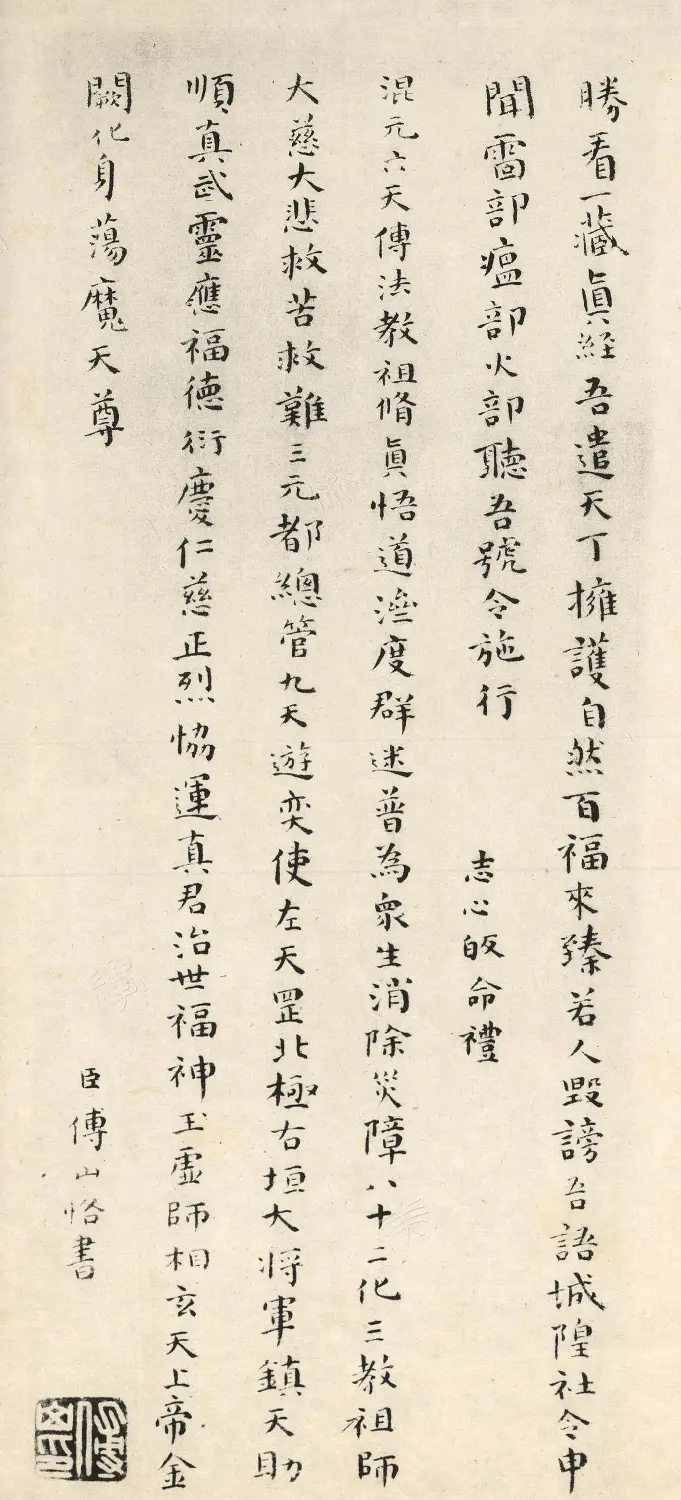 勝看一藏眞經吾遣天丁擁護自然百福來臻若人毀謗吾語城隍社令申
聞雷部瘟部火部聽吾號令施行
志心皈命禮
混元六天傳法教祖脩眞悟道濟度群迷普為衆生消除災障八十二化三教祖師
大慈大悲救苦救難三元都總管九天遊奕使左天罡北極右垣大將軍鎮天助
順真武靈應福德衍慶仁慈正烈協運真君治世福神玉虛師相玄天上帝金
闕化身蕩魔天尊
臣傅山恪書
傅山印